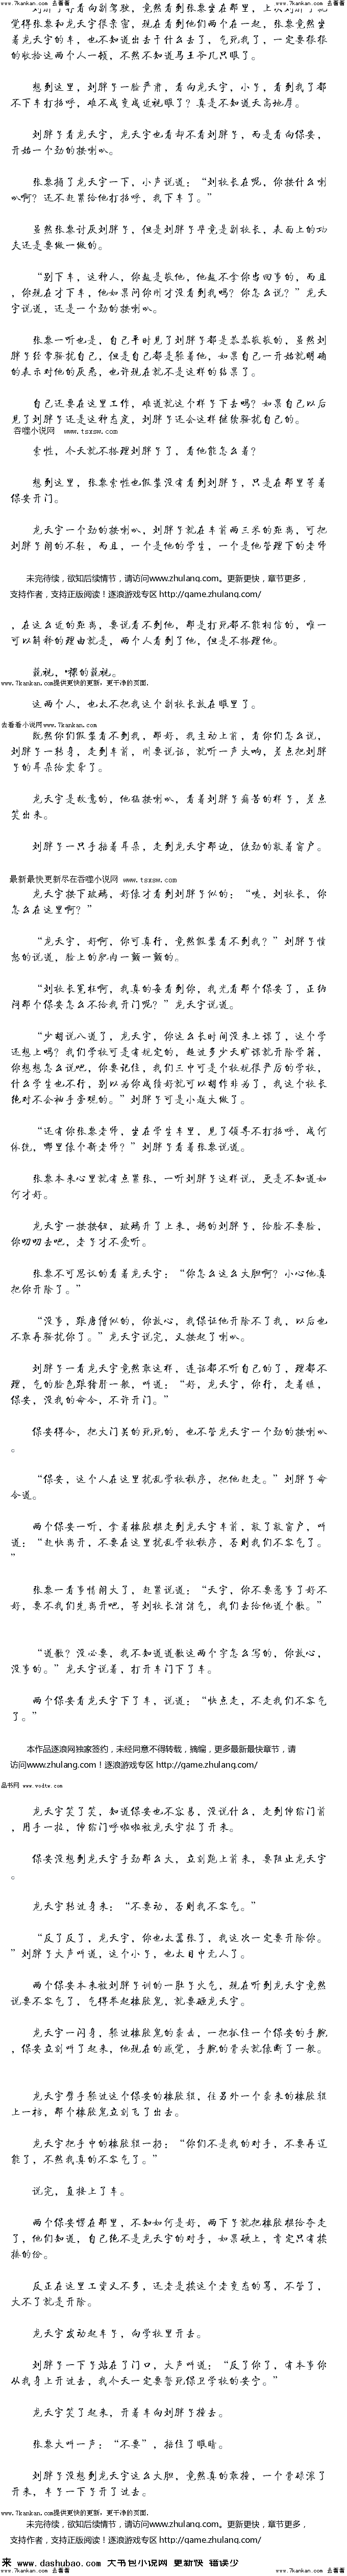 www.7kankan.com 去看看 www.7kankan.com 去看看
觉得张黎和龙天宇很亲密，现在看到他们两个在一起，张黎竟然坐
着龙天宇的车，也不知道出去干什么去了，气死我了，一定要狠狠
的收拾这两个人一顿，不然不知道马王爷几只眼了。
想到这里，刘胖子一脸严肃，看向龙天宇，小子，看到我了都
不下车打招呼，难不成变成近视眼了？真是不知道天高地厚。
刘胖子看龙天宇，龙天宇也看却不看刘胖子，而是看向保安，
开始一个劲的按喇叭。
张黎捅了龙天宇一下，小声说道：“刘校长在呢，你按什么喇
叭啊？还不赶紧给他打招呼，我下车了。”
虽然张黎讨厌刘胖子，但是刘胖子毕竟是副校长，表面上的功
夫还是要做一做的。
“别下车，这种人，你越是敬他，他越不拿你当回事的，而且
，你现在才下车，他如果问你刚才没看到我吗？你怎么说？”龙天
宇说道，还是一个劲的按喇叭。
张黎一听也是，自己平时见了刘胖子都是恭恭敬敬的，虽然刘
胖子经常骚扰自己，但是自己都是躲着他，如果自己一开始就明确
的表示对他的厌恶，也许现在就不是这样的结果了。
自己还要在这里工作，难道就这个样子下去吗？如果自己以后
见了刘胖子还是这种态度，刘胖子还会这样继续骚扰自己的。
吞噬小说网 www.tsxsw.com
索性，今天就不搭理刘胖子了，看他能怎么着？
想到这里，张黎索性也假装没有看到刘胖子，只是在那里等着
保安开门。
龙天宇一个劲的按喇叭，刘胖子就在车前两三米的距离，可把
刘胖子闹的不轻，而且，一个是他的学生，一个是他管理下的老师
未完待续，欲知后续情节，请访问www.zhulang.com。更新更快，章节更多，
支持作者，支持正版阅读！逐浪游戏专区 http://game.zhulang.com/
，在这么近的距离，要说看不到他，那是打死都不能相信的，唯一
可以解释的理由就是，两个人看到了他，但是不搭理他。
藐视，裸的藐视。
www.7kankan.com提供更快的更新，更干净的页面.
这两个人，也太不把我这个副校长放在眼里了。
去看看小说网www.7kankan.com
既然你们假装看不到我，那好，我主动上前，看你们怎么说，
刘胖子一转身，走到车前，刚要说话，就听一声大响，差点把刘胖
子的耳朵给震聋了。
龙天宇是故意的，他猛按喇叭，看着刘胖子痛苦的样子，差点
笑出来。
刘胖子一只手捂着耳朵，走到龙天宇那边，使劲的敲着窗户。
最新最快更新尽在吞噬小说网 www.tsxsw.com
龙天宇按下玻璃，好像才看到刘胖子似的：“咦，刘校长，你
怎么在这里啊？”
“龙天宇，好啊，你可真行，竟然假装看不到我？”刘胖子愤
怒的说道，脸上的肥肉一颤一颤的。
“刘校长冤枉啊，我真的没看到你，我光看那个保安了，正纳
闷那个保安怎么不给我开门呢？”龙天宇说道。
“少胡说八道了，龙天宇，你这么长时间没来上课了，这个学
还想上吗？我们学校可是有规定的，超过多少天旷课就开除学籍，
你想想怎么说吧，你要记住，我们三中可是个校规很严厉的学校，
什么学生也不行，别以为你成绩好就可以胡作非为了，我这个校长
绝对不会袖手旁观的。”刘胖子可是小题大做了。
“还有你张黎老师，坐在学生车里，见了领导不打招呼，成何
体统，哪里像个新老师？”刘胖子看着张黎说道。
张黎本来心里就有点紧张，一听刘胖子这样说，更是不知道如
何才好。
龙天宇一按按钮，玻璃升了上来，妈的刘胖子，给脸不要脸，
你叨叨去吧，老子才不爱听。
张黎不可思议的看着龙天宇：“你怎么这么大胆啊？小心他真
把你开除了。”
“没事，跟唐僧似的，你放心，我保证他开除不了我，以后也
不敢再骚扰你了。”龙天宇说完，又按起了喇叭。
刘胖子一看龙天宇竟然敢这样，连话都不听自己的了，理都不
理，气的脸色跟猪肝一般，叫道：“好，龙天宇，你行，走着瞧，
保安，没我的命令，不许开门。”
保安得令，把大门关的死死的，也不管龙天宇一个劲的按喇叭
。
“保安，这个人在这里扰乱学校秩序，把他赶走。”刘胖子命
令道。
两个保安一听，拿着橡胶棍走到龙天宇车前，敲了敲窗户，叫
道：“赶快离开，不要在这里扰乱学校秩序，否则我们不客气了。
”
张黎一看事情闹大了，赶紧说道：“天宇，你不要惹事了好不
好，要不我们先离开吧，等刘校长消消气，我们去给他道个歉。”
“道歉？没必要，我不知道道歉这两个字怎么写的，你放心，
没事的。”龙天宇说着，打开车门下了车。
两个保安看龙天宇下了车，说道：“快点走，不走我们不客气
了。”
本作品逐浪网独家签约，未经同意不得转载，摘编，更多最新最快章节，请
访问www.zhulang.com！逐浪游戏专区 http://game.zhulang.com/
品书网 www.vodtw.com
龙天宇笑了笑，知道保安也不容易，没说什么，走到伸缩门前
，用手一拉，伸缩门呼啦啦被龙天宇拉了开来。
保安没想到龙天宇手劲那么大，立刻跑上前来，要阻止龙天宇
。
龙天宇转过身来：“不要动，否则我不客气。”
“反了反了，龙天宇，你也太嚣张了，我这次一定要开除你。
”刘胖子大声叫道，这个小子，也太目中无人了。
两个保安本来被刘胖子训的一肚子火气，现在听到龙天宇竟然
说要不客气了，气得举起橡胶棍，就要砸龙天宇。
龙天宇一闪身，躲过橡胶棍的袭击，一把抓住一个保安的手腕
，保安立刻叫了起来，他现在的感觉，手腕的骨头就像断了一般。
龙天宇劈手躲过这个保安的橡胶棍，往另外一个袭来的橡胶棍
上一档，那个橡胶棍立刻飞了出去。
龙天宇把手中的橡胶棍一扔：“你们不是我的对手，不要再逞
能了，不然我真的不客气了。”
说完，直接上了车。
两个保安愣在那里，不知如何是好，两下子就把橡胶棍给夺走
了，他们知道，自己绝不是龙天宇的对手，如果硬上，肯定只有挨
揍的份。
反正在这里工资又不多，还老是挨这个老变态的骂，不管了，
大不了就是开除。
龙天宇发动起车子，向学校里开去。
刘胖子一下子站在了门口，大声叫道：“反了你了，有本事你
从我身上开过去，我今天一定要誓死保卫学校的安宁。”
龙天宇笑了起来，开着车向刘胖子撞去。
张黎大叫一声：“不要”，捂住了眼睛。
刘胖子没想到龙天宇这么大胆，竟然真的敢撞，一个骨碌滚了
开来，车子一下子开了过去。
www.7kankan.com提供更快的更新，更干净的页面.
未完待续，欲知后续情节，请访问www.zhulang.com。更新更快，章节更多，
支持作者，支持正版阅读！逐浪游戏专区 http://game.zhulang.com/
来 www.dashubao.com 大书包小说网 更新快 错误少
www.7kankan.com 去看看 www.7kankan.com 去看看